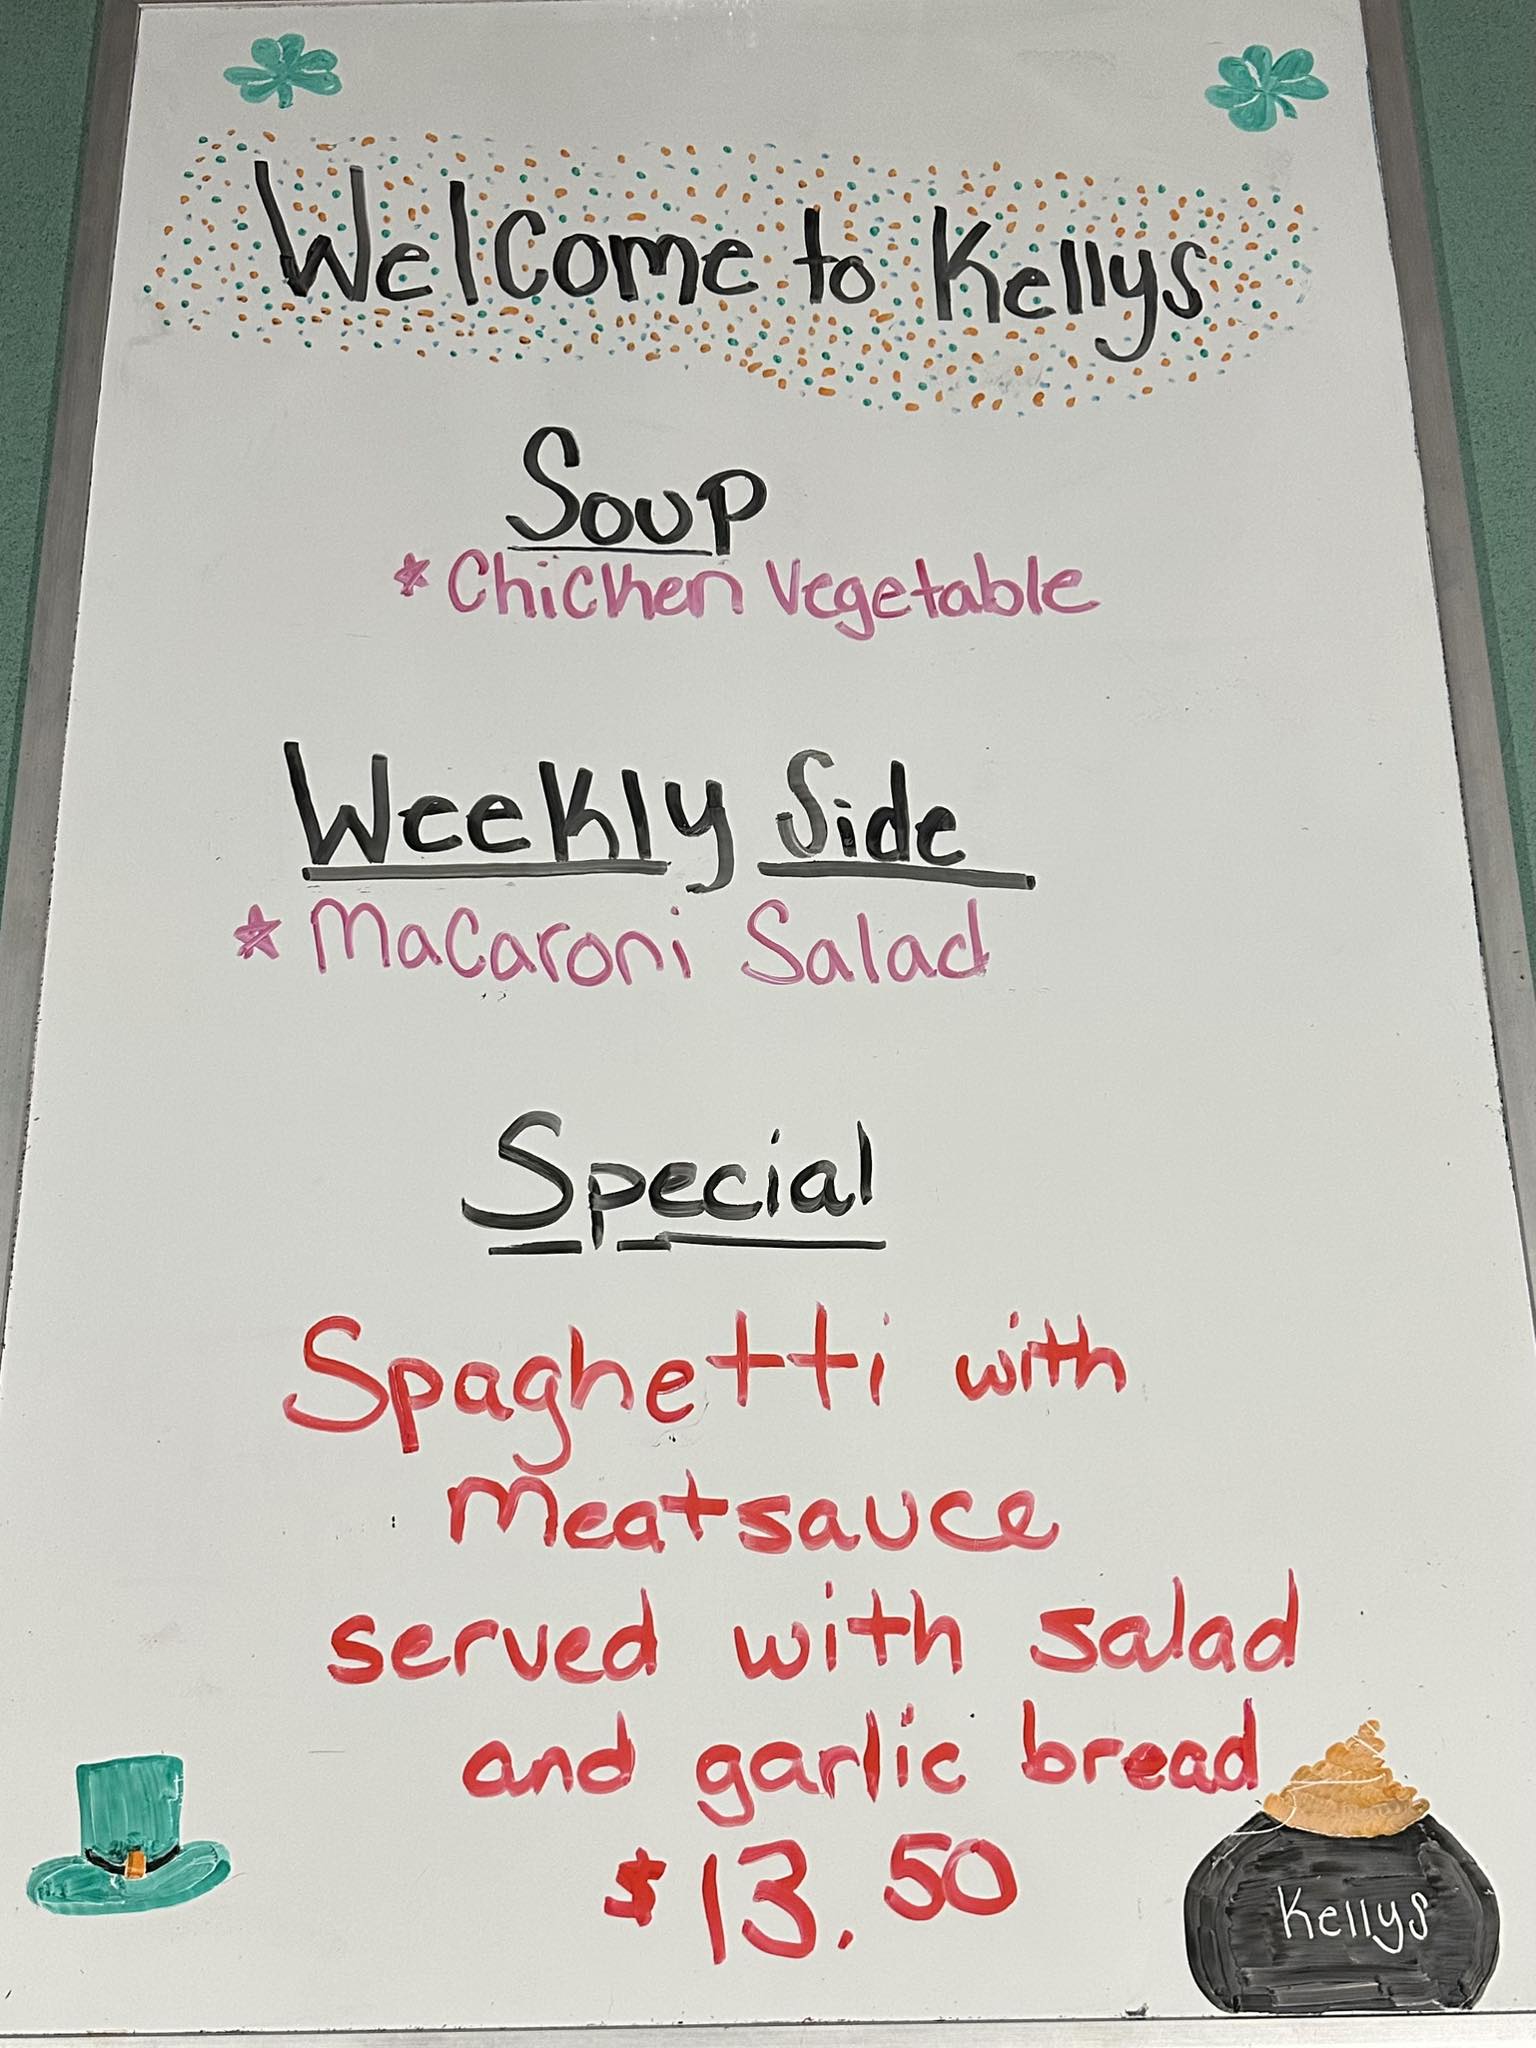 Welcome to Kellys
Soup
* Chicken Vegetable
Weekly Side
* Macaroni Salad
Special
Spaghetti with
meatsauce
served with salad
and garlic bread
$13.50
Kellys